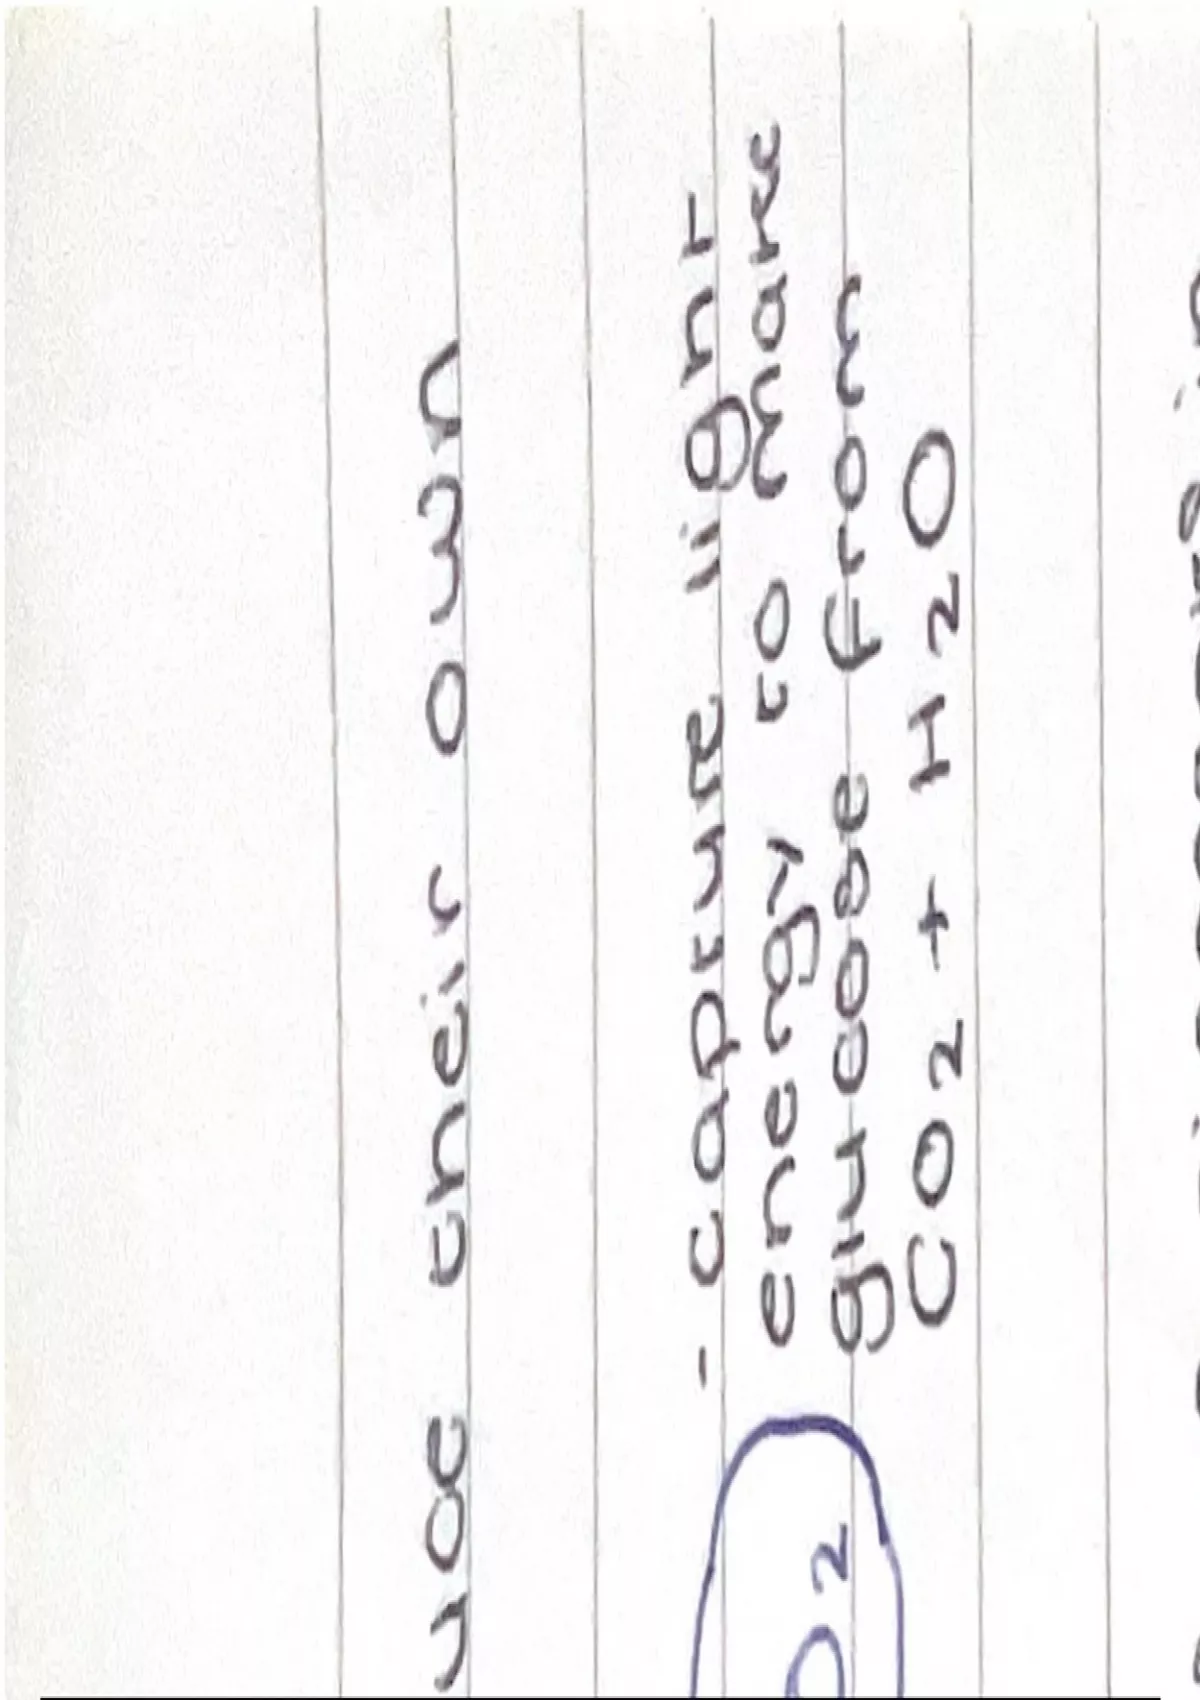 their own
- capture light
energy to make
glucose from
O2
CO2 + H2O